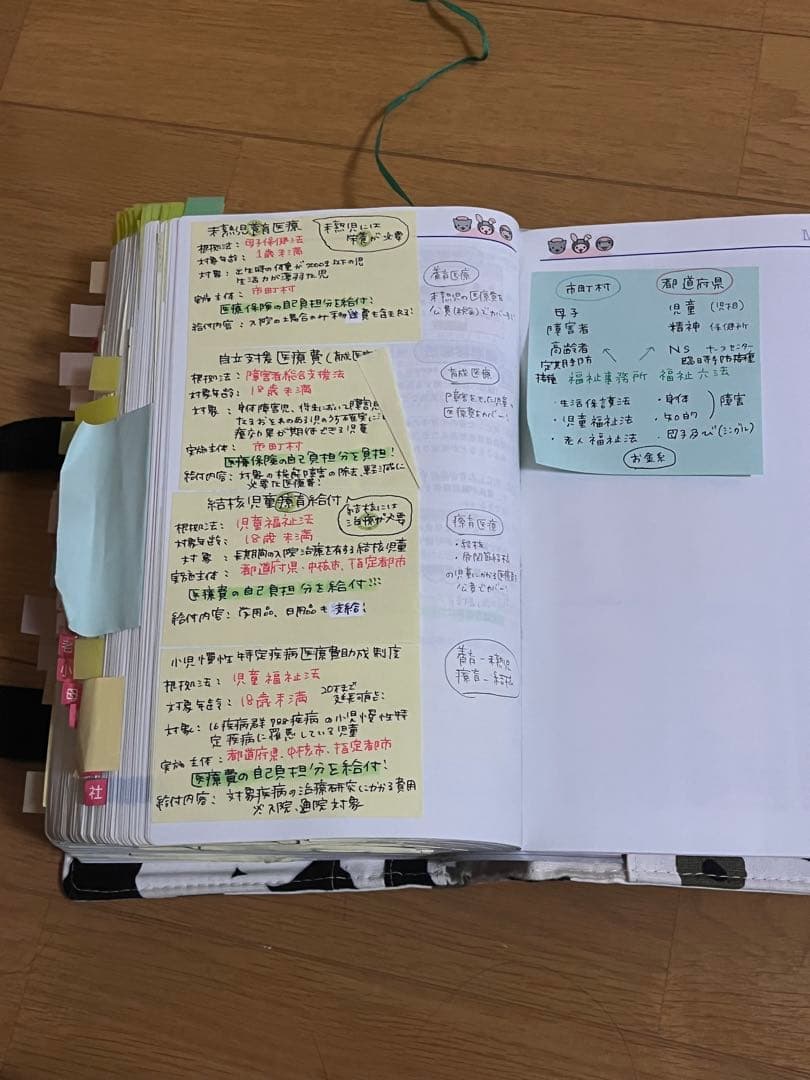 未熟児養育医療
未熟児には
栄養が必要
根拠法：母子保健法
対象年齢：1歳未満
対象：出生時の体重が2000g以下の児
生活力が薄弱な児
実施主体：市町村
医療保険の自己負担分を給付！
給付内容：入院の場合のみ
自立支援医療費(育成医
根拠法：障害者総合支援法
対象年齢：18歳未満
対象：身体障害児、将来において障害児
療効果が期待できる児童
実施主体：市町村
医療保険の自己負担分を負担！
給付内容：対象の機能障害の除去、軽減に
必要な医療費！
結核児童療育給付
結核には
治療が必要
根拠法：児童福祉法
対象年齢：18歳未満
対象：長期間の入院治療を有する結核児童
実施主体：都道府県・中核市、指定都市
医療費の自己負担分を給付！！！
給付内容：学用品、日用品も支給！
小児慢性特定疾病医療費助成制度
根拠法：児童福祉法
対象年齢：18歳未満
20才まで
延長可能！
対象：16疾病群788疾病の小児慢性特
定疾病に罹患している児童
実施主体：都道府県、中核市、指定都市
医療費の自己負担分を給付！
給付内容：対象疾病の治療研究にかかる費用
※入院、通院対象
養育医療
未熟児の医療費を
公費でカバー
育成医療
医療費をカバー！
療育医療
・結核
・骨関節結核
の児童にかかる医療費
公費でカバー！
養育ー未熟児
療育ー結核
市町村
母子
障害者
高齢者
定期予防
接種
都道府県
児童(児相)
精神 保健所
NS ナースセンター
臨時予防接種
福祉事務所 福祉六法
・生活保護法
・児童福祉法
・老人福祉法
・身体
・知的
障害
・母子及び(シングル)
お金系
小
田
社